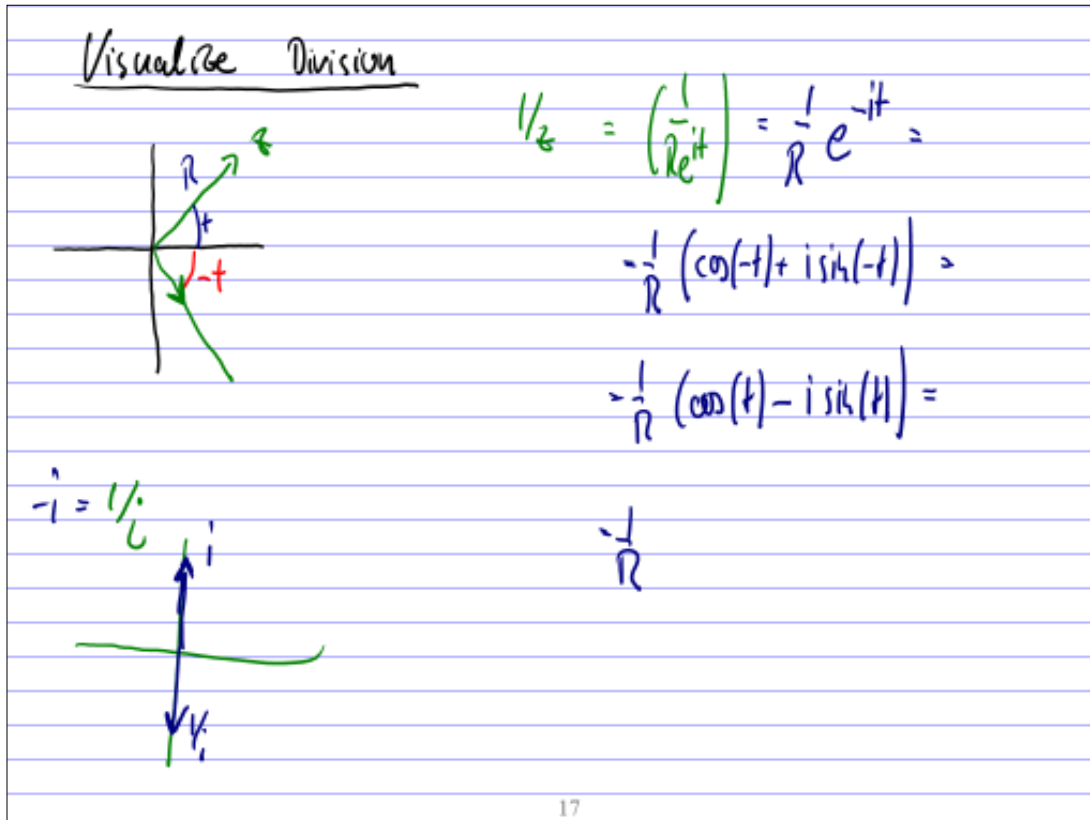 Visualize Division
1/z = (1/Re^it) = 1/R e^-it =
z
R
t
-t
= 1/R (cos(-t) + i sin(-t)) =
= 1/R (cos(t) - i sin(t)) =
-i = 1/i
i
= 1/R
1/i
17